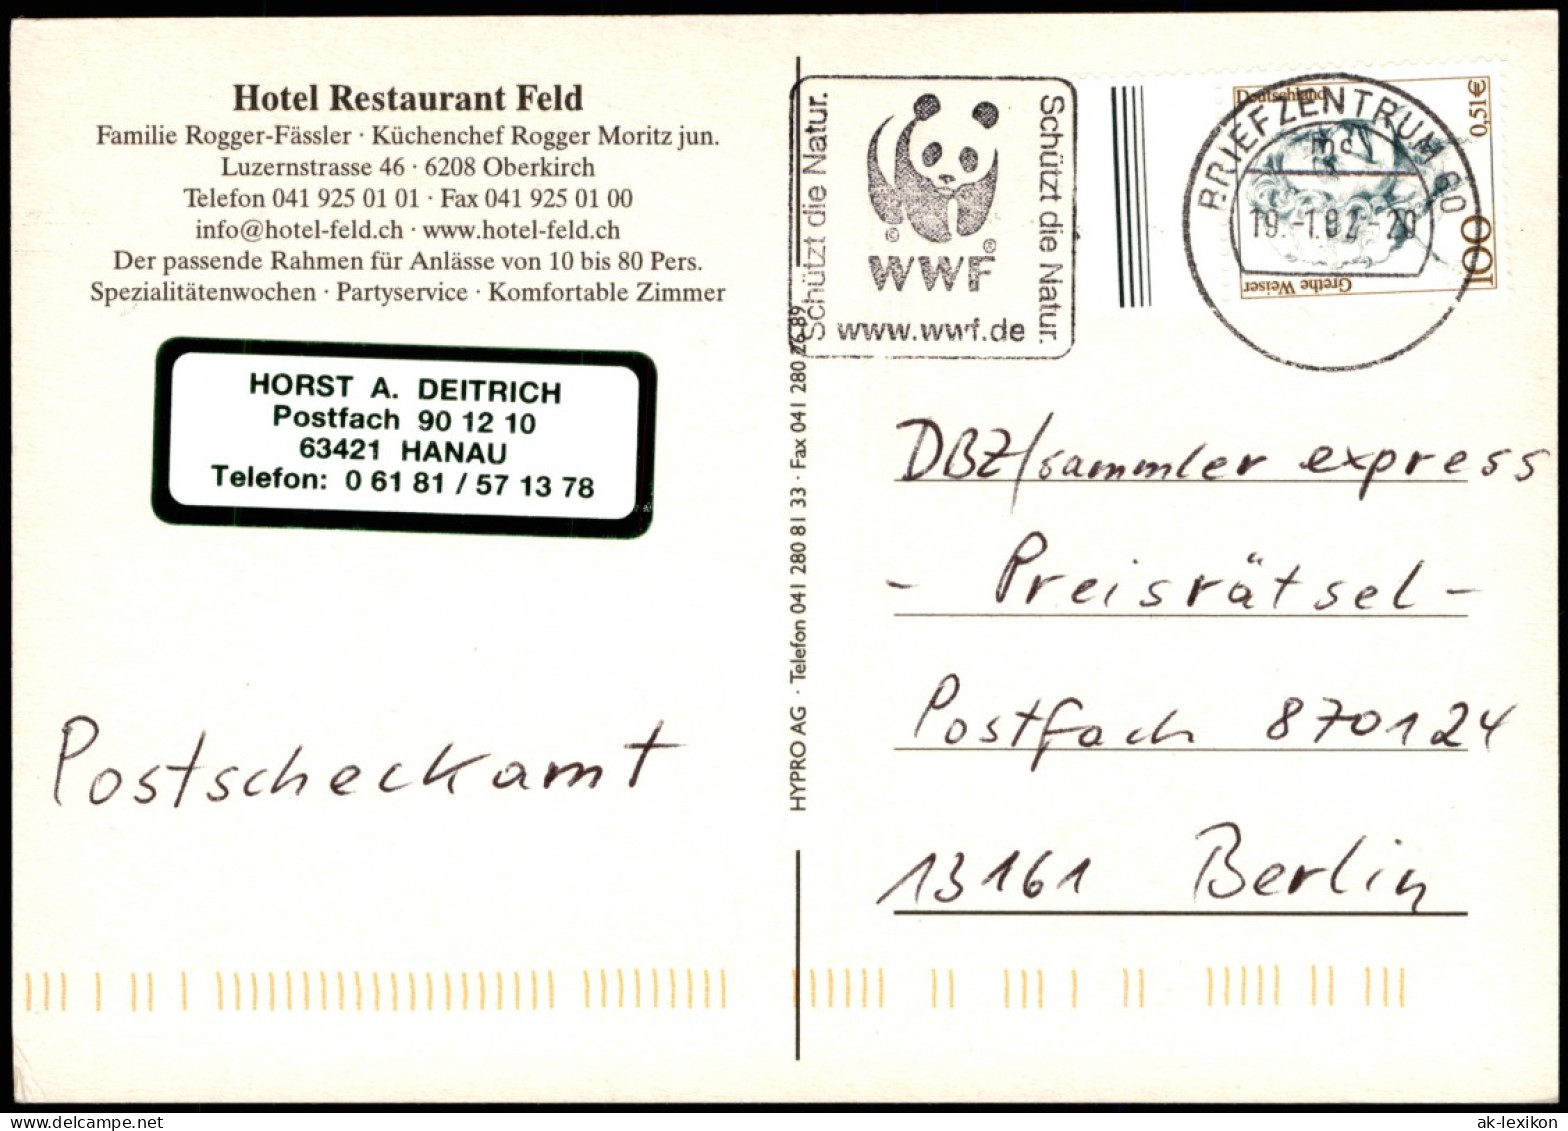 Hotel Restaurant Feld
Familie Rogger-Fässler · Küchenchef Rogger Moritz jun.
Luzernstrasse 46 · 6208 Oberkirch
Telefon 041 925 01 01 · Fax 041 925 01 00
info@hotel-feld.ch · www.hotel-feld.ch
Der passende Rahmen für Anlässe von 10 bis 80 Pers.
Spezialitätenwochen · Partyservice · Komfortable Zimmer
HORST A. DEITRICH
Postfach 90 12 10
63421 HANAU
Telefon: 0 61 81 / 57 13 78
Postscheckamt
HYPRO AG · Telefon 041 280 81 33 · Fax 041 280 26 89
Schützt die Natur.
© WWF ®
www.wwf.de
Schützt die Natur.
BRIEFZENTRUM 60
mc
19.-1.02-20
Deutschland
0,51€
100
Grethe Weiser
DBZ/sammler express
- Preisrätsel -
Postfach 870124
13161 Berlin
ak-lexikon